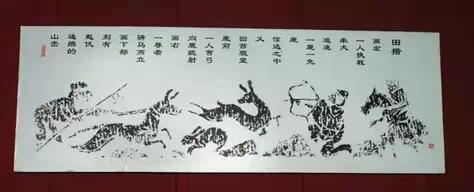 田猎
画左
一人执戟
牵犬
追逐
一鹿一兔
鹿
惊逃之中
又
回首观望
鹿前
一人弯弓
向鹿射
画右
一尊者
骑马而立
画下部
刻有
起伏
连绵的
山峦